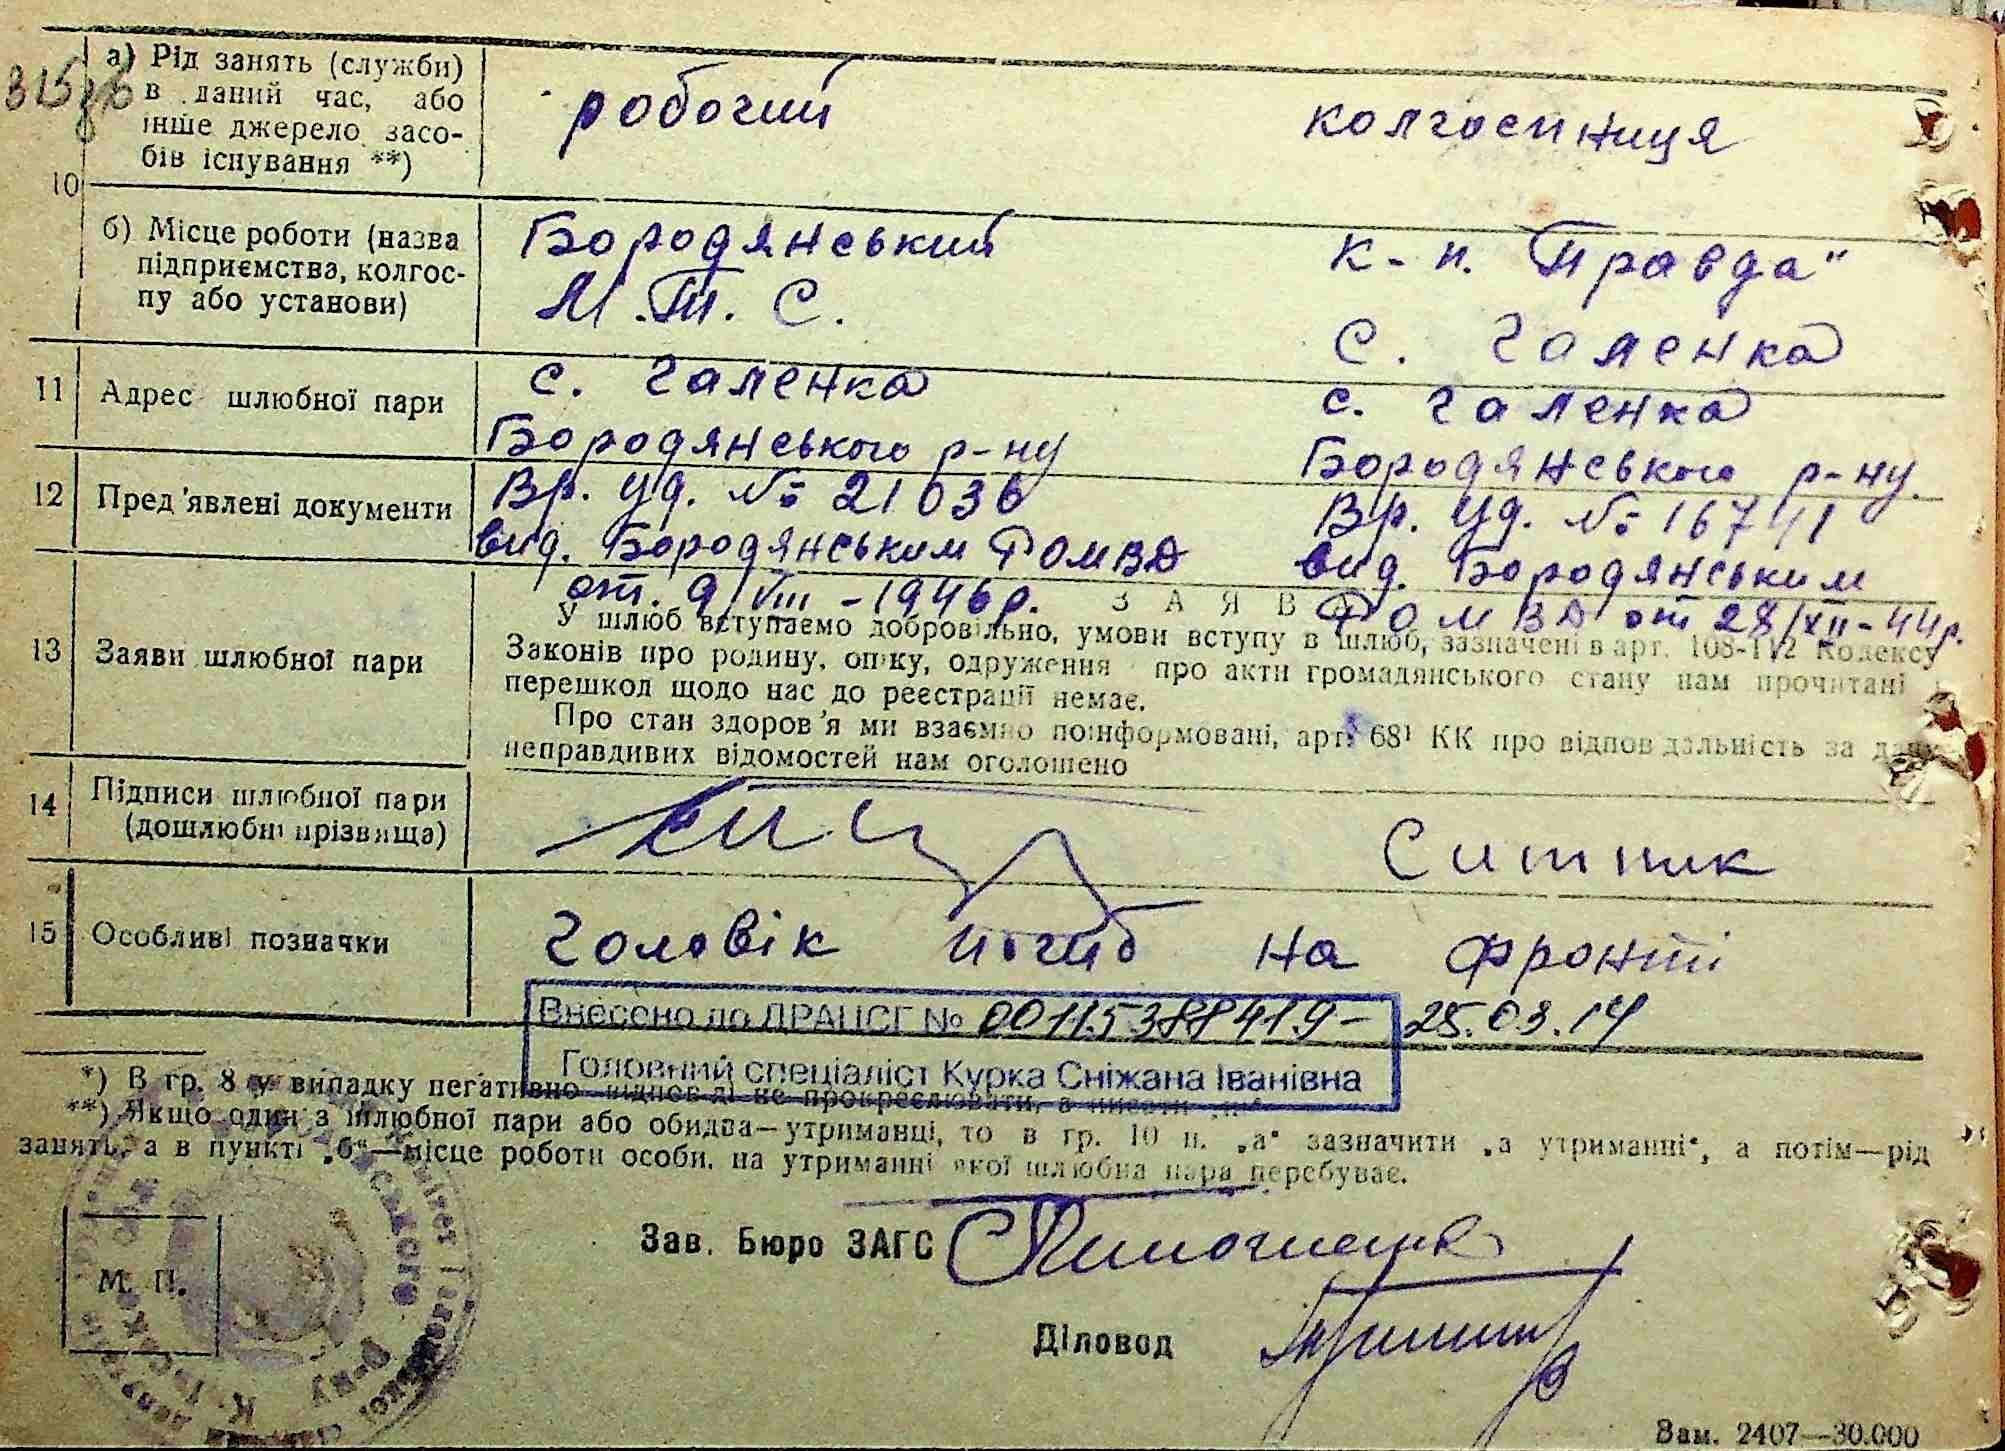 315зв
10
а) Рід занять (служби) в даний час, або інше джерело засобів існування **)
робочий
колгоспниця
б) Місце роботи (назва підприємства, колгоспу або установи)
Бородянський
М.Т.С.
к-п. Правда"
с. Галенка
11 Адрес шлюбної пари
с. Галенка
Бородянського р-ну
с. Галенка
Бородянського р-ну.
12 Пред'явлені документи
Вр. уд. № 21036
вид. Бородянським РОМВД
от. 9/VIII-1946р.
Вр. уд. № 16741
вид. Бородянським
РОМВД от 28/XII-44р.
13 Заяви шлюбної пари
ЗАЯВ
У шлюб вступаємо добровільно, умови вступу в шлюб, зазначені в арт. 108-112 Кодексу
Законів про родину, опіку, одруження про акти громадянського стану нам прочитані
перешкод щодо нас до реєстрації немає.
Про стан здоров'я ми взаємно поінформовані, арт. 68¹ КК про відповідальність за дачу
неправдивих відомостей нам оголошено
14 Підписи шлюбної пари (дошлюбні прізвища)
Ситник
15 Особливі позначки
Чоловік погиб на фронті
Внесено до ДРАЦСГ № 00115388419- 25.03.14
Головний спеціаліст Курка Сніжана Іванівна
*) В гр. 8 у випадку негативно відповіді не прокреслювати, а писати
**) Якщо один з шлюбної пари або обидва—утриманці, то в гр. 10 п. „а" зазначити „з утриманні", а потім—рід
занять, а в пункті „б"—місце роботи особи, на утриманні якої шлюбна пара перебуває.
Зав. Бюро ЗАГС
М. П.
Діловод
Зам. 2407—30.000